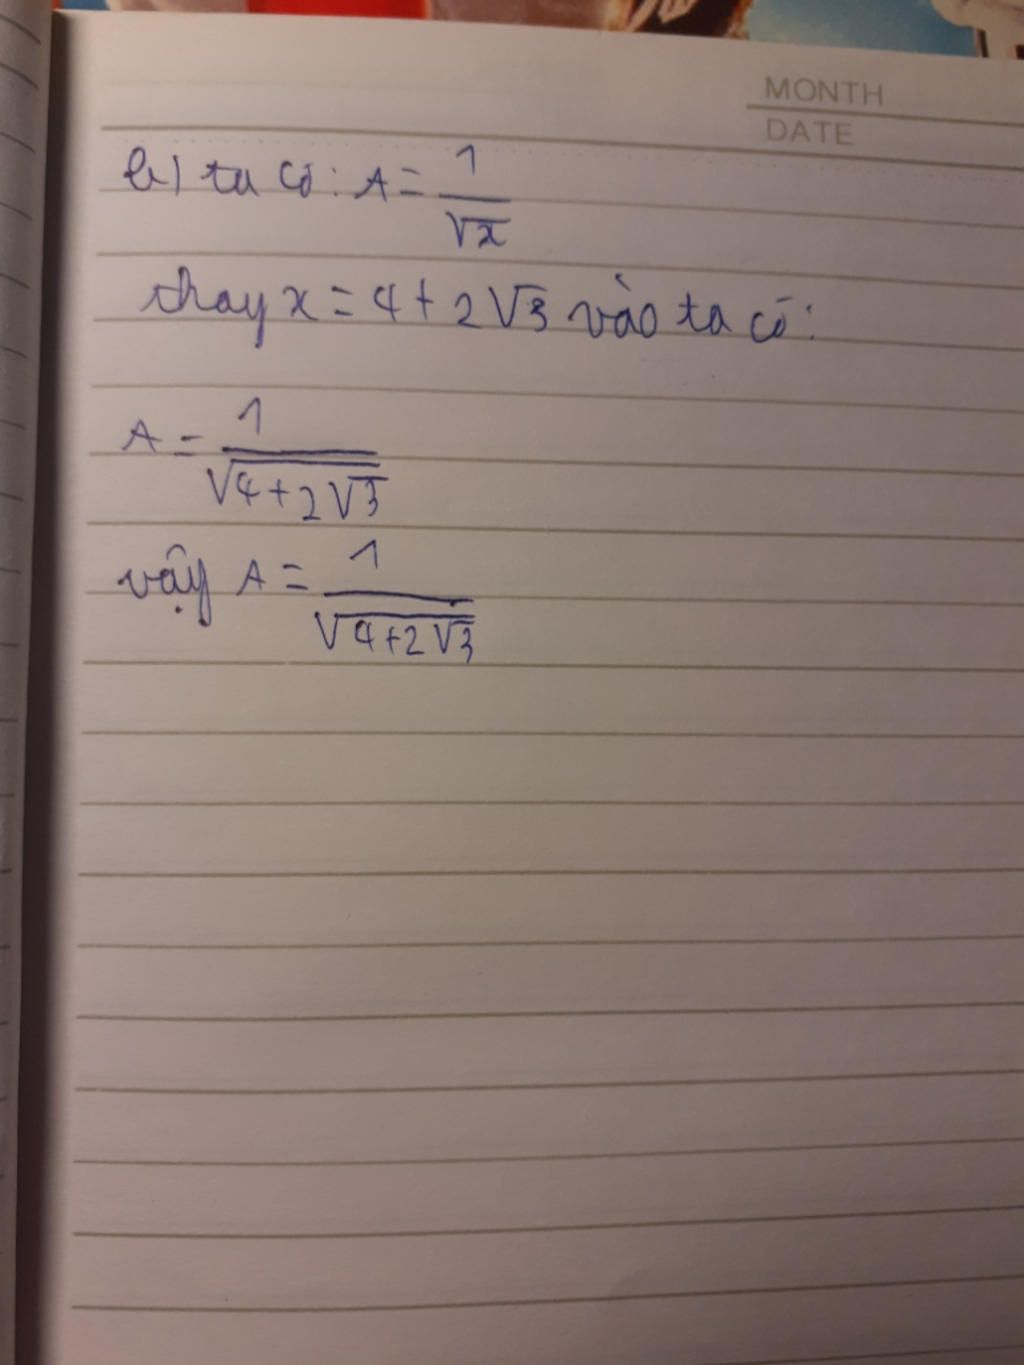 MONTH
DATE
b) ta có: A = 1/√x
thay x = 4 + 2√3 vào ta có:
A = 1/√(4+2√3)
vậy A = 1/√(4+2√3)